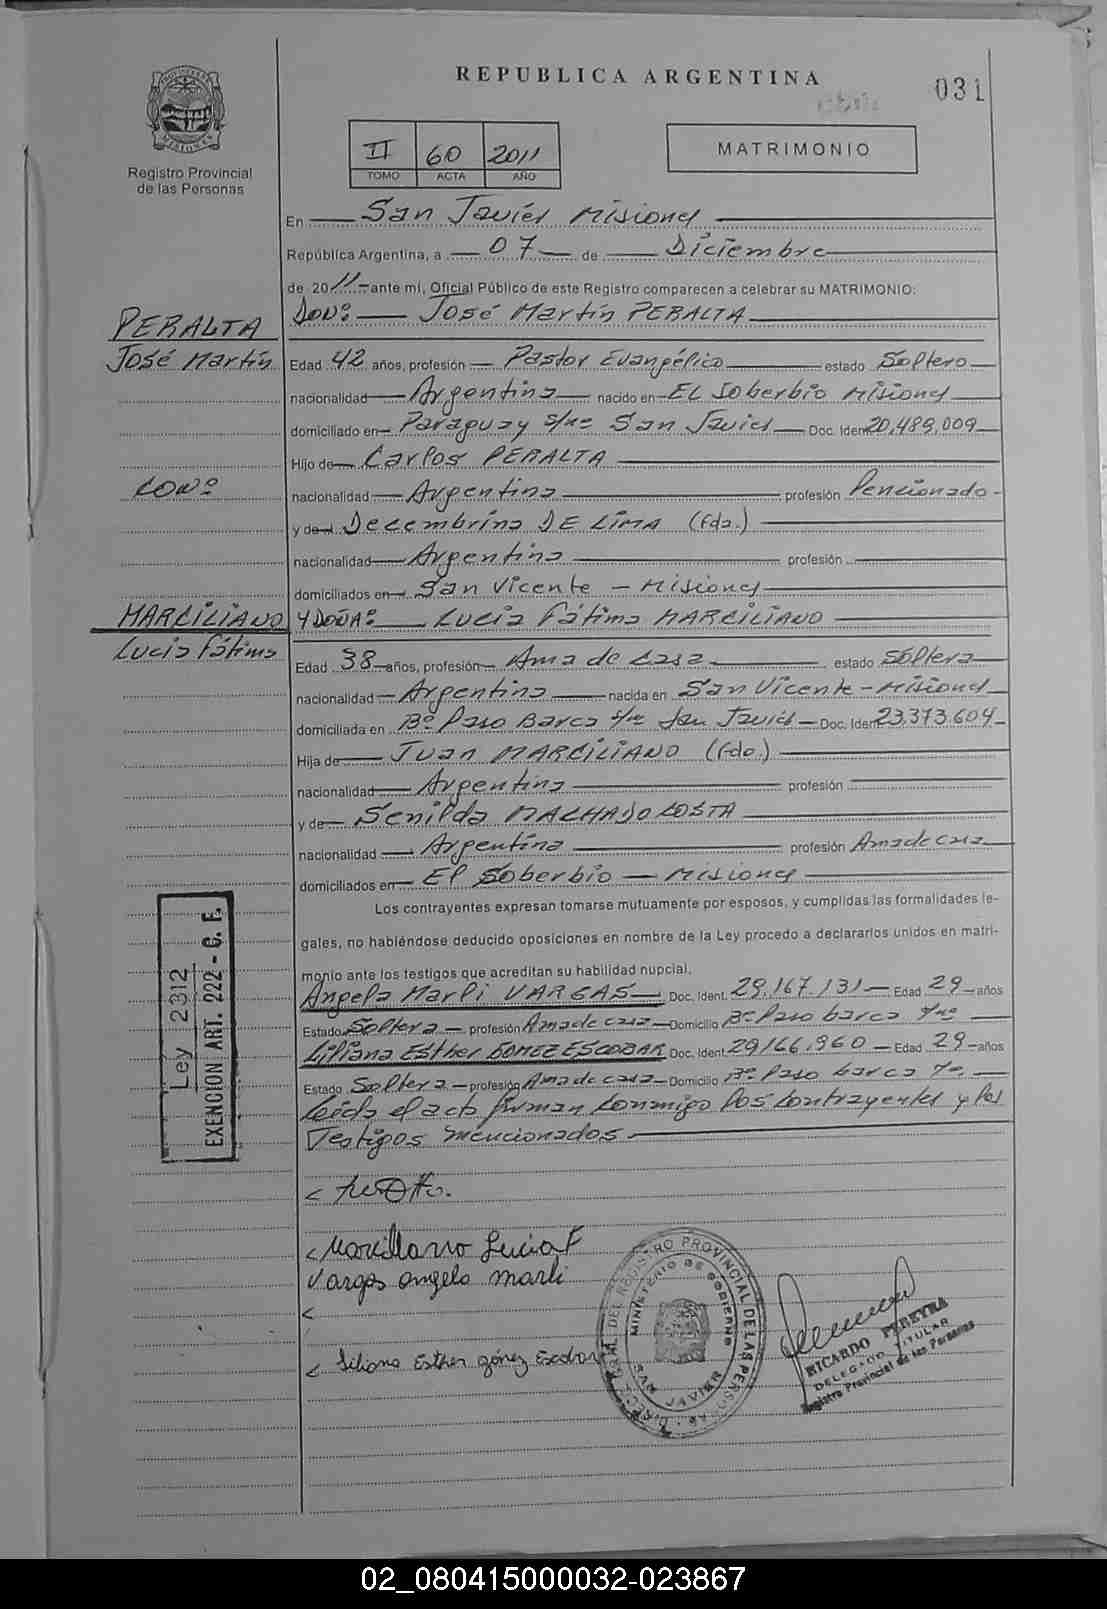 REPUBLICA ARGENTINA
031
PROVINCIA DE MISIONES
Registro Provincial
de las Personas
II 60 2011
TOMO ACTA AÑO
MATRIMONIO
En San Javier Misiones
República Argentina, a 07 de Diciembre
de 2011 ante mí, Oficial Público de este Registro comparecen a celebrar su MATRIMONIO:
PERALTA
José Martín
DON: José Martín PERALTA
Edad 42 años, profesión Pastor Evangélico estado Soltero
nacionalidad Argentina nacido en El Soberbio Misiones
domiciliado en Paraguay s/nº San Javier Doc. Ident 20.489.009
Hijo de Carlos PERALTA
CON:
nacionalidad Argentina profesión Pencionado
y de Decembrina DE LIMA (fda.)
nacionalidad Argentina profesión
domiciliados en San Vicente - Misiones
MARCILIANO
Lucia Fátima
Y DOÑA: Lucia Fátima MARCILIANO
Edad 38 años, profesión Ama de casa estado Soltera
nacionalidad Argentina nacida en San Vicente - Misiones
domiciliada en Bº Paso Barca s/nº San Javier Doc. Iden 23.373.604
Hija de Juan MARCILIANO (fdo.)
nacionalidad Argentina profesión
y de Senilda MACHADO COSTA
nacionalidad Argentina profesión Ama de casa
domiciliados en El Soberbio - Misiones
Los contrayentes expresan tomarse mutuamente por esposos, y cumplidas las formalidades le-
gales, no habiéndose deducido oposiciones en nombre de la Ley procedo a declararlos unidos en matri-
monio ante los testigos que acreditan su habilidad nupcial.
Angela Marli VARGAS Doc. Ident. 29.167.131 Edad 29 años
Estado Soltera profesión Ama de casa Domicilio Bº Paso barca s/nº
Liliana Esther GOMEZ ESCOBAR Doc. Ident. 29.166.960 Edad 29 años
Estado Soltera profesión Ama de casa Domicilio Bº Paso barca s/nº
Leída el acta firman conmigo los contrayentes y los
Testigos mencionados
Ley 2312
EXENCION ART. 222 - C. F.
Marciliano Lucia F
Vargas angela marli
Liliana Esther gómez Escobar
DIREC. GRAL. DEL REGISTRO PROVINCIAL DE LAS PERSONAS
MINISTERIO DE GOBIERNO
SAN JAVIER
RICARDO PEREYRA
DELEGADO TITULAR
Registro Provincial de las Personas
02_080415000032-023867